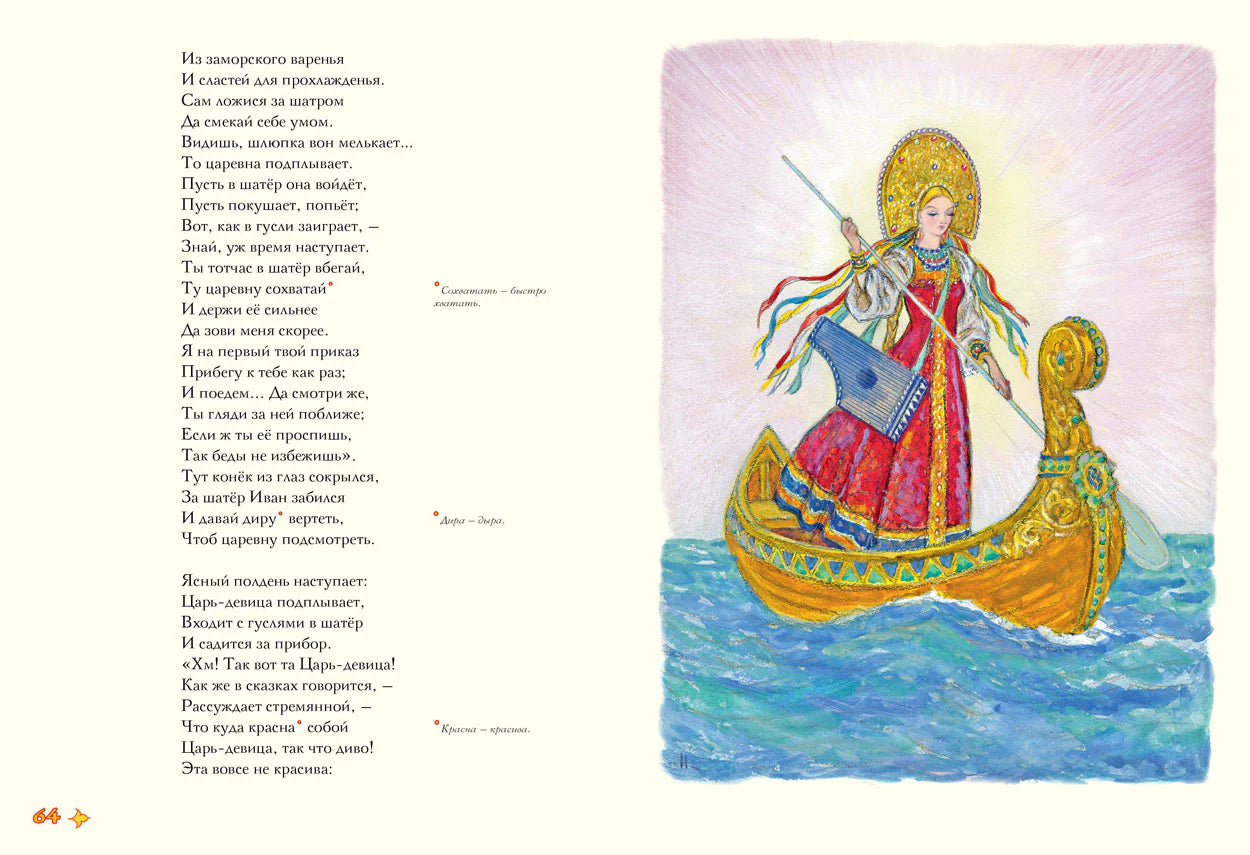 Из заморского варенья
И сластей для прохлажденья.
Сам ложися за шатром
Да смекай себе умом.
Видишь, шлюпка вон мелькает...
То царевна подплывает.
Пусть в шатёр она войдёт,
Пусть покушает, попьёт;
Вот, как в гусли заиграет, –
Знай, уж время наступает.
Ты тотчас в шатёр вбегай,
Ту царевну сохватай*
И держи её сильнее
Да зови меня скорее.
Я на первый твой приказ
Прибегу к тебе как раз;
И поедем... Да смотри же,
Ты гляди за ней поближе;
Если ж ты её проспишь,
Так беды не избежишь».
Тут конёк из глаз сокрылся,
За шатёр Иван забился
И давай диру* вертеть,
Чтоб царевну подсмотреть.
Ясный полдень наступает:
Царь-девица подплывает,
Входит с гуслями в шатёр
И садится за прибор.
«Хм! Так вот та Царь-девица!
Как же в сказках говорится, –
Рассуждает стремянной, –
Что куда красна* собой
Царь-девица, так что диво!
Эта вовсе не красива:
* Сохватать – быстро
хватать.
* Дира – дыра.
* Красна – красива.
64